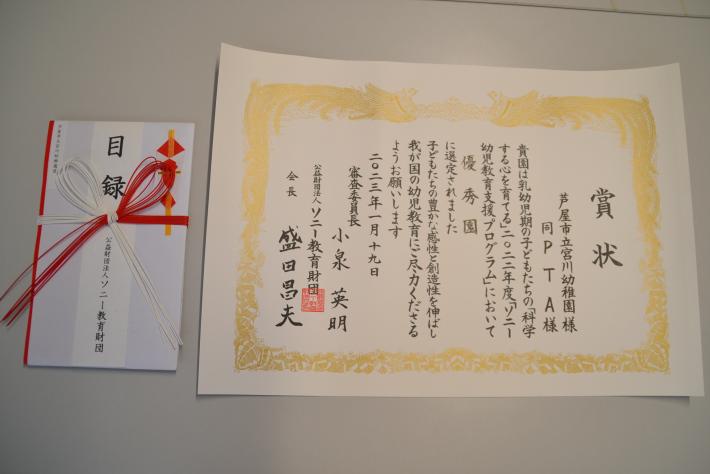 賞状
芦屋市立宮川幼稚園様
同PTA様
貴園は乳幼児期の子どもたちの「科学
する心を育てる」二〇二二年度「ソニー
幼児教育支援プログラム」において
優秀園
に選定されました
子どもたちの豊かな感性と創造性を伸ばし
我が国の幼児教育にご尽力くださる
ようお願いします
二〇二三年一月十九日
審査委員長 小泉英明
公益財団法人ソニー教育財団
会長 盛田昌夫
目録
公益財団法人ソニー教育財団